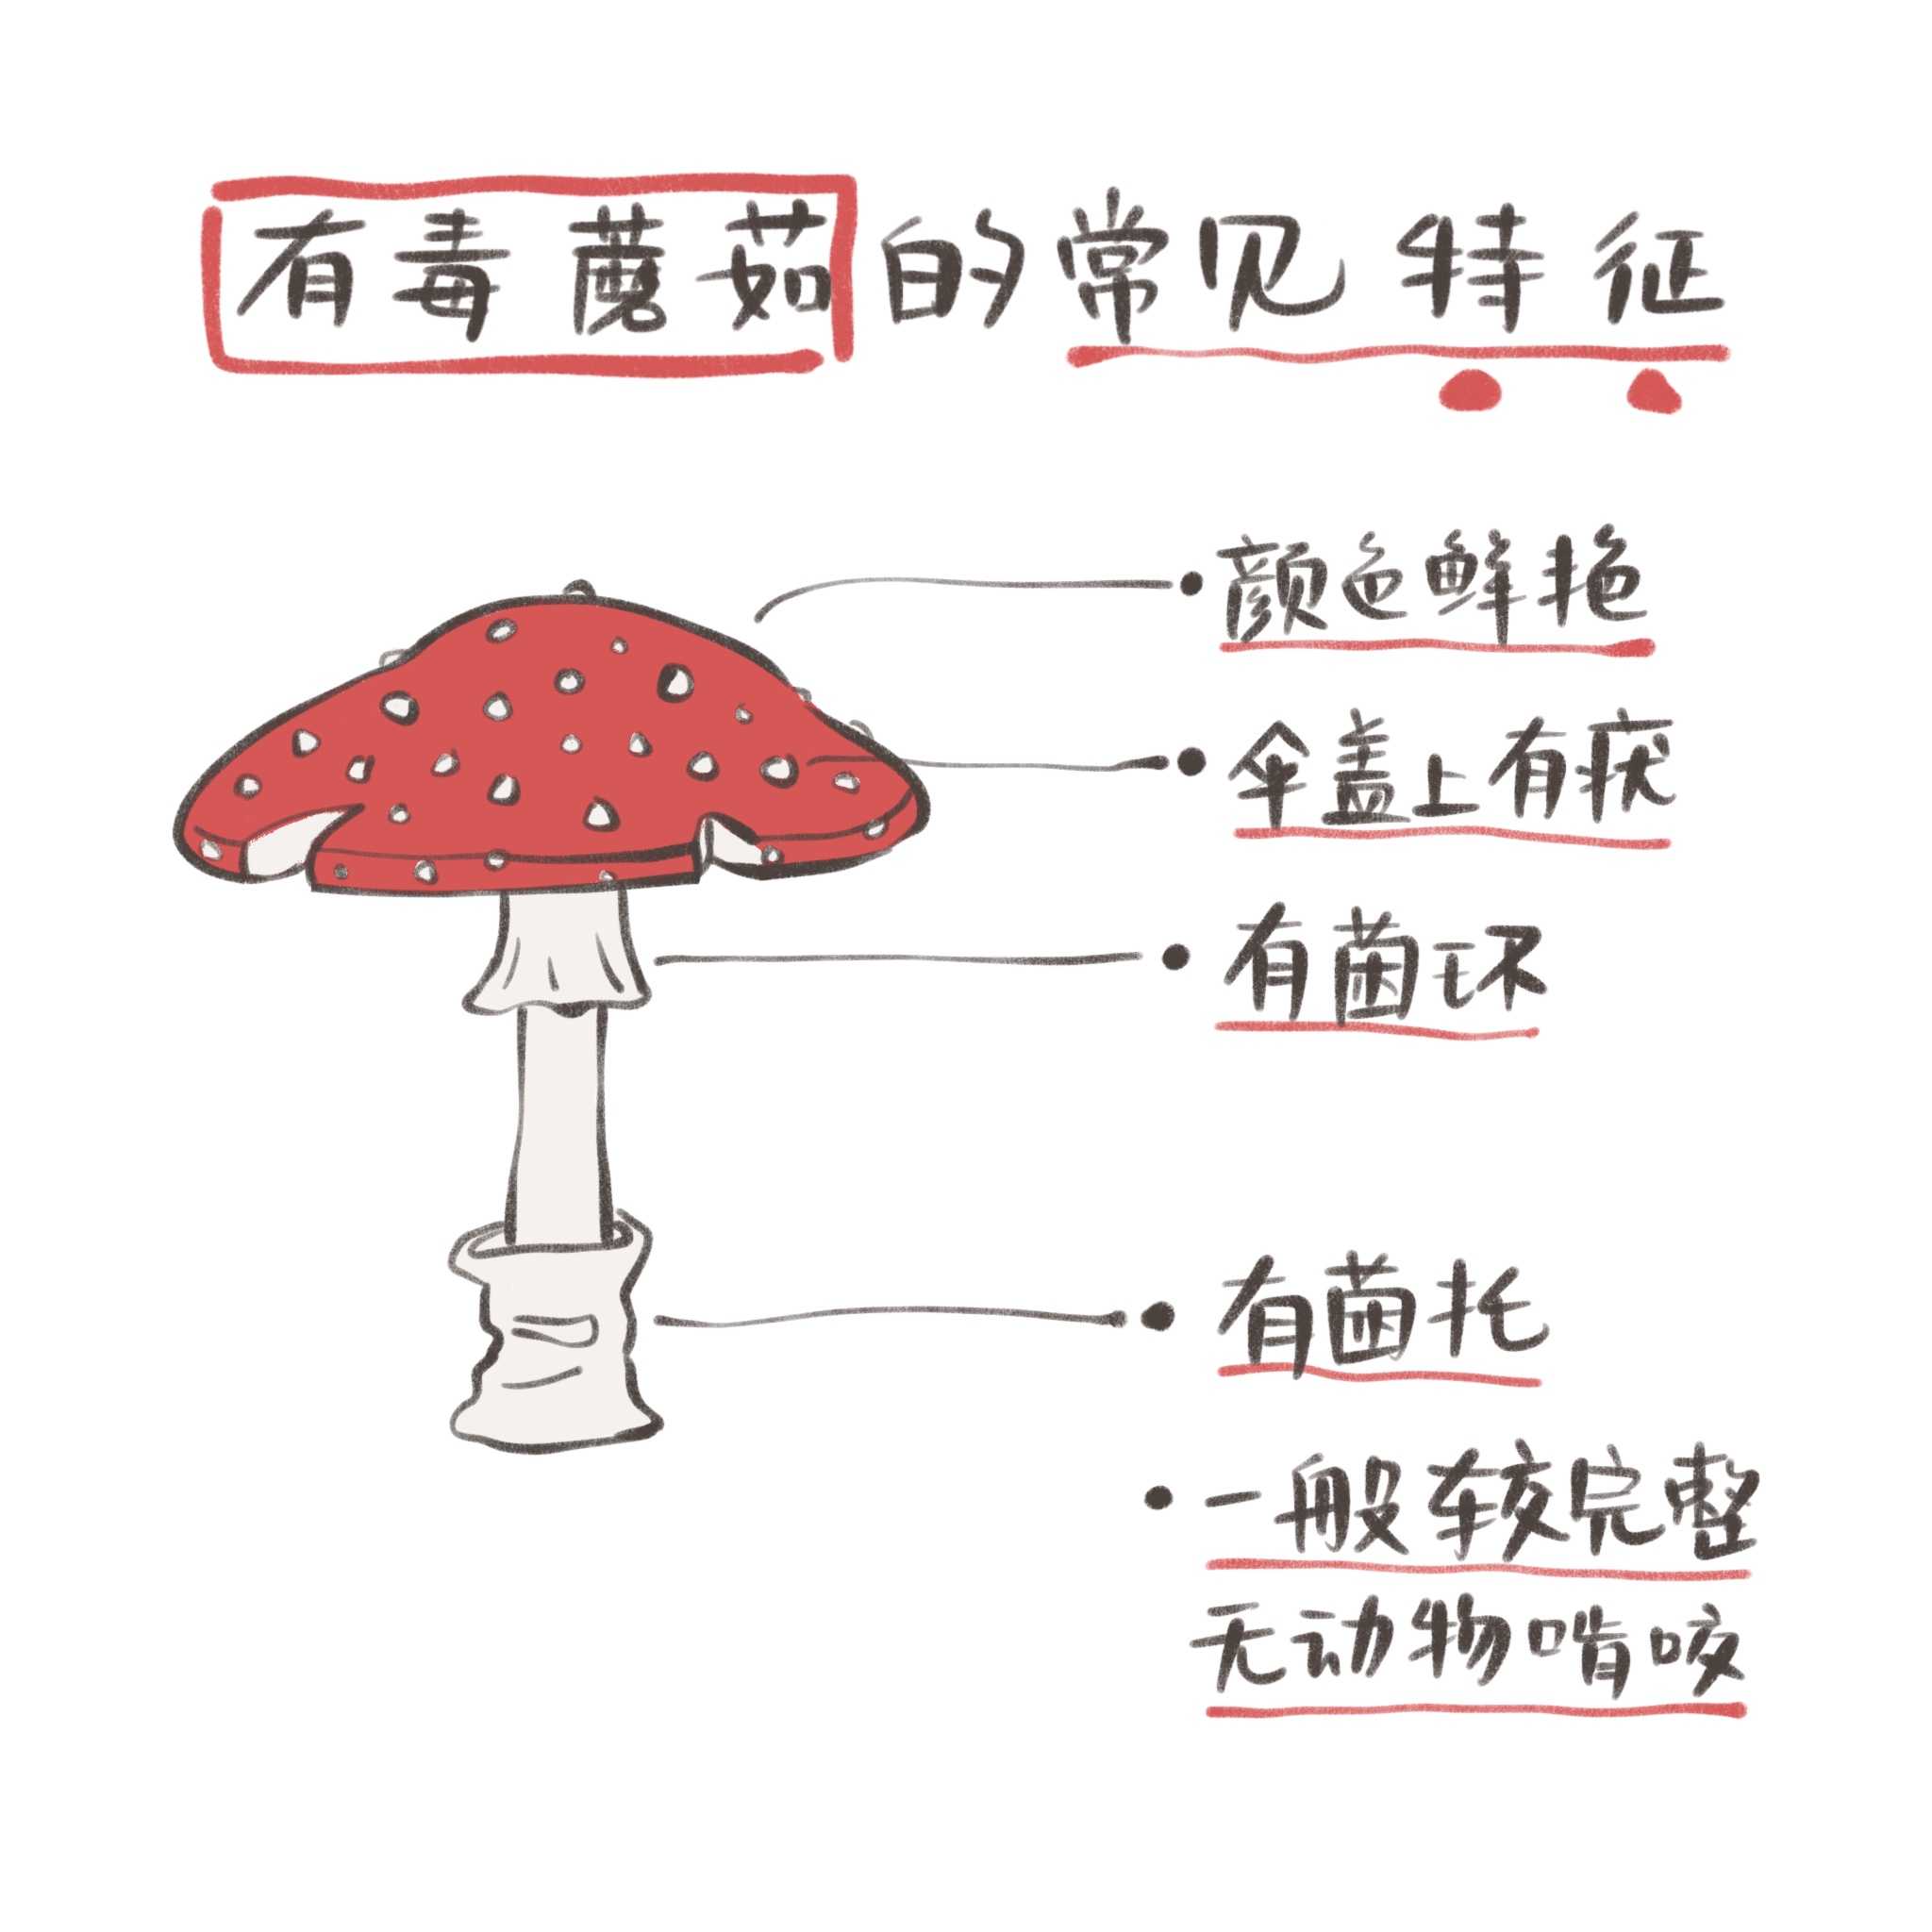 有毒蘑菇的常见特征
颜色鲜艳
伞盖上有疣
有菌环
有菌托
一般较完整
无动物啃咬